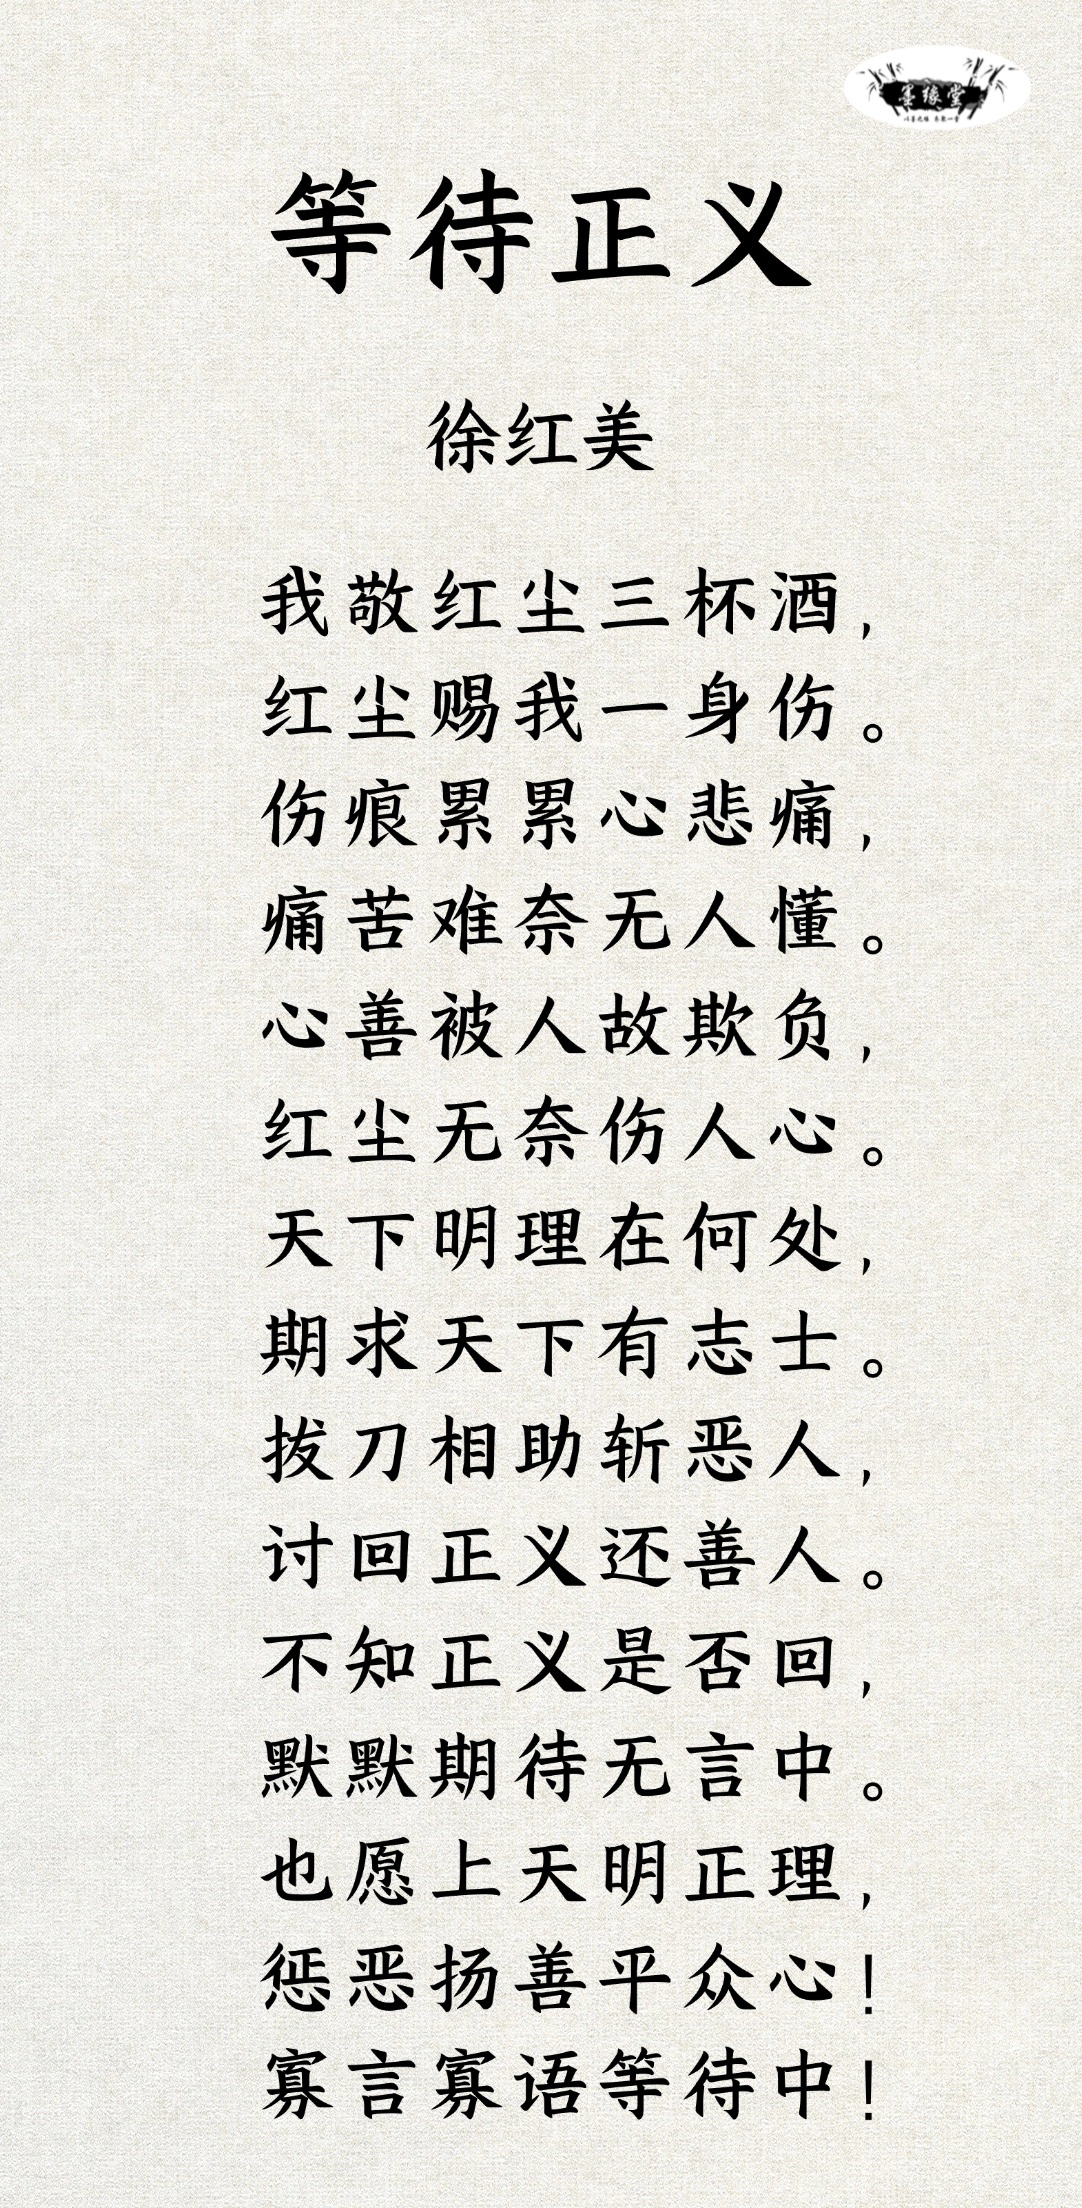 墨缘堂
等待正义
徐红美
我敬红尘三杯酒,
红尘赐我一身伤。
伤痕累累心悲痛,
痛苦难奈无人懂。
心善被人故欺负,
红尘无奈伤人心。
天下明理在何处,
期求天下有志士。
拔刀相助斩恶人,
讨回正义还善人。
不知正义是否回,
默默期待无言中。
也愿上天明正理,
惩恶扬善平众心!
寡言寡语等待中!